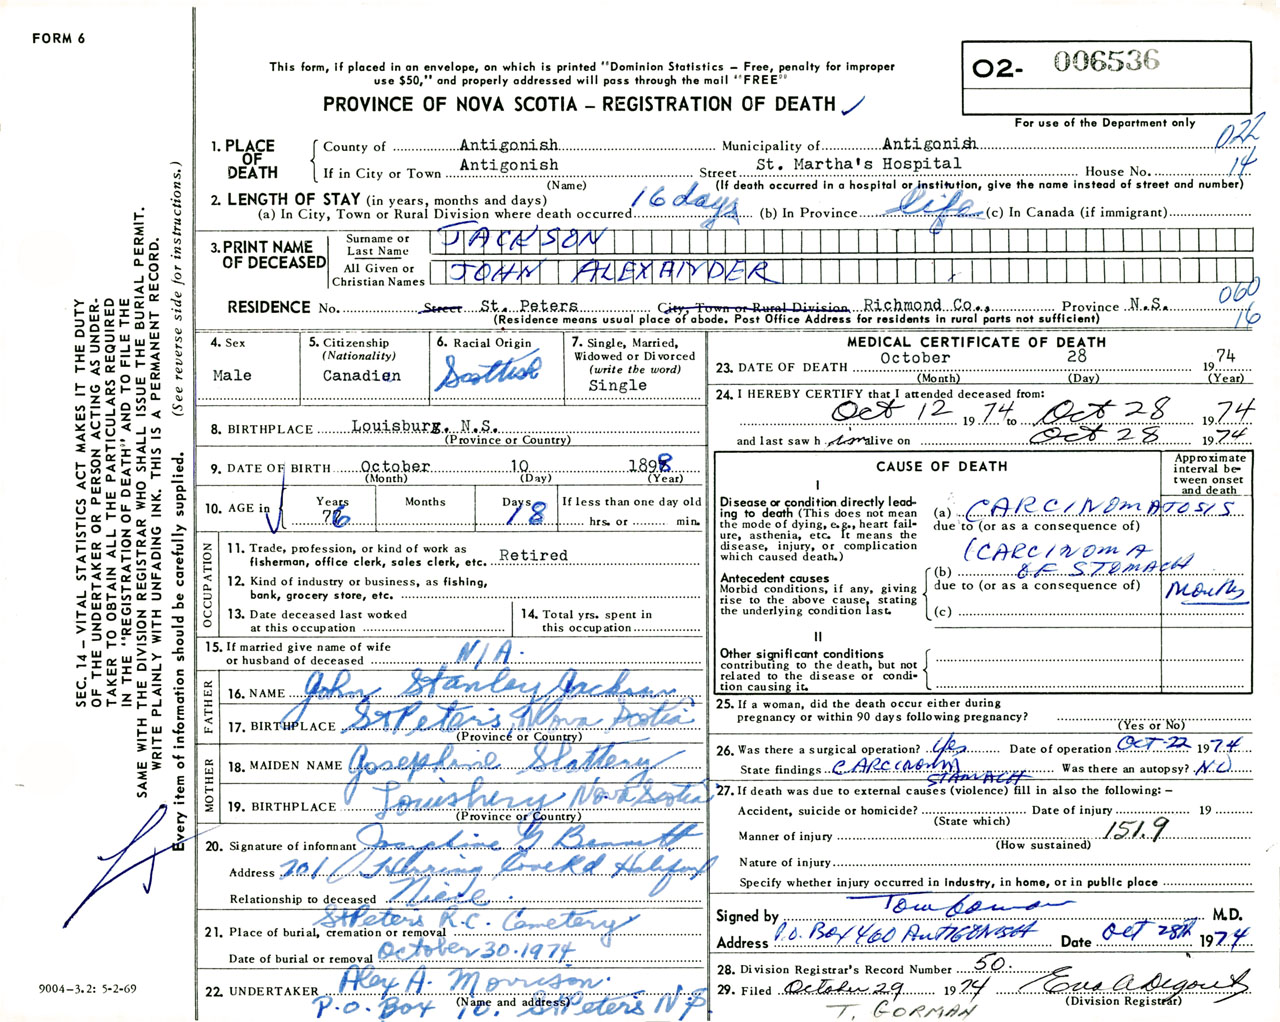 FORM 6
This form, if placed in an envelope, on which is printed "Dominion Statistics – Free, penalty for improper
use $50," and properly addressed will pass through the mail "FREE"
PROVINCE OF NOVA SCOTIA – REGISTRATION OF DEATH ✓
O2- 006536
For use of the Department only
022
14
1. PLACE OF DEATH
County of Antigonish Municipality of Antigonish
If in City or Town Antigonish Street St. Martha's Hospital House No.
(Name) (If death occurred in a hospital or institution, give the name instead of street and number)
2. LENGTH OF STAY (in years, months and days)
(a) In City, Town or Rural Division where death occurred 16 days (b) In Province life (c) In Canada (if immigrant)
3. PRINT NAME OF DECEASED
Surname or Last Name JACKSON
All Given or Christian Names JOHN ALEXAINDER
060
16
RESIDENCE No. Street St. Peters City, Town or Rural Division Richmond Co., Province N.S.
(Residence means usual place of abode. Post Office Address for residents in rural parts not sufficient)
4. Sex
Male
5. Citizenship
(Nationality)
Canadien
6. Racial Origin
Scottish
7. Single, Married,
Widowed or Divorced
(write the word)
Single
8. BIRTHPLACE Louisburg, N.S.
(Province or Country)
9. DATE OF BIRTH October 10 1898
(Month) (Day) (Year)
10. AGE in
Years
76
Months
Days
18
If less than one day old
hrs. or min.
OCCUPATION
11. Trade, profession, or kind of work as
fisherman, office clerk, sales clerk, etc. Retired
12. Kind of industry or business, as fishing,
bank, grocery store, etc.
13. Date deceased last worked
at this occupation
14. Total yrs. spent in
this occupation
15. If married give name of wife
or husband of deceased N/A.
FATHER
16. NAME John Stanley Jackson
17. BIRTHPLACE St Peters, Nova Scotia
(Province or Country)
MOTHER
18. MAIDEN NAME Josephine Slattery
19. BIRTHPLACE Louisburg Nova Scotia
(Province or Country)
20. Signature of informant Josephine G Bennett
Address 201 Herring Cove Rd Halifax
Relationship to deceased Niece.
St Peters R.C. Cemetery
21. Place of burial, cremation or removal
Date of burial or removal October 30. 1974
22. UNDERTAKER Alex A. Morrison
(Name and address)
P.O. Box 10. St Peters N.S.
MEDICAL CERTIFICATE OF DEATH
23. DATE OF DEATH October 28 1974
(Month) (Day) (Year)
24. I HEREBY CERTIFY that I attended deceased from:
Oct 12 1974 to Oct 28 1974
and last saw him alive on Oct 28 1974
CAUSE OF DEATH
Approximate
interval be-
tween onset
and death
I
Disease or condition directly lead-
ing to death (This does not mean
the mode of dying, e.g., heart fail-
ure, asthenia, etc. It means the
disease, injury, or complication
which caused death.)
(a) CARCINOMATOSIS
due to (or as a consequence of)
(CARCINOMA
(b) OF STOMACH
Antecedent causes
Morbid conditions, if any, giving
rise to the above cause, stating
the underlying condition last.
due to (or as a consequence of)
Months
(c)
II
Other significant conditions
contributing to the death, but not
related to the disease or condi-
tion causing it.
25. If a woman, did the death occur either during
pregnancy or within 90 days following pregnancy?
(Yes or No)
26. Was there a surgical operation? Yes Date of operation Oct-22 1974
State findings CARCINOMA STOMACH Was there an autopsy? NO
27. If death was due to external causes (violence) fill in also the following: –
Accident, suicide or homicide? Date of injury 19
(State which)
Manner of injury 151.9
(How sustained)
Nature of injury
Specify whether injury occurred in industry, in home, or in public place
Signed by Tom Gorman M.D.
Address P.O. Box 460 ANTIGONISH Date Oct 28th 1974
28. Division Registrar's Record Number 50.
29. Filed October 29 1974 Eva A Degout
(Division Registrar)
T. GORMAN
SEC. 14 – VITAL STATISTICS ACT MAKES IT THE DUTY
OF THE UNDERTAKER OR PERSON ACTING AS UNDER-
TAKER TO OBTAIN ALL THE PARTICULARS REQUIRED
IN THE "REGISTRATION OF DEATH" AND TO FILE THE
SAME WITH THE DIVISION REGISTRAR WHO SHALL ISSUE THE BURIAL PERMIT.
WRITE PLAINLY WITH UNFADING INK. THIS IS A PERMANENT RECORD.
Every item of information should be carefully supplied. (See reverse side for instructions.)
9004-3.2: 5-2-69